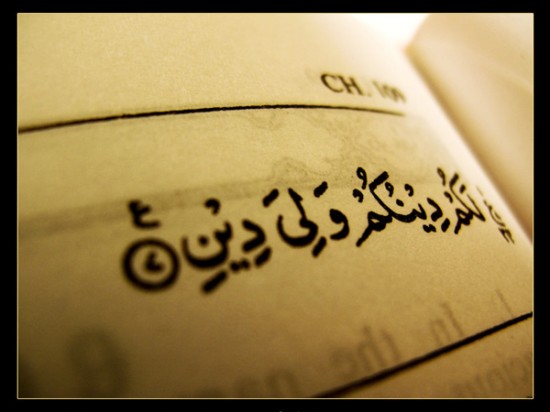 CH. 109
ع
لَكُمْ دِيْنُكُمْ وَلِيَ دِيْنِ
In the